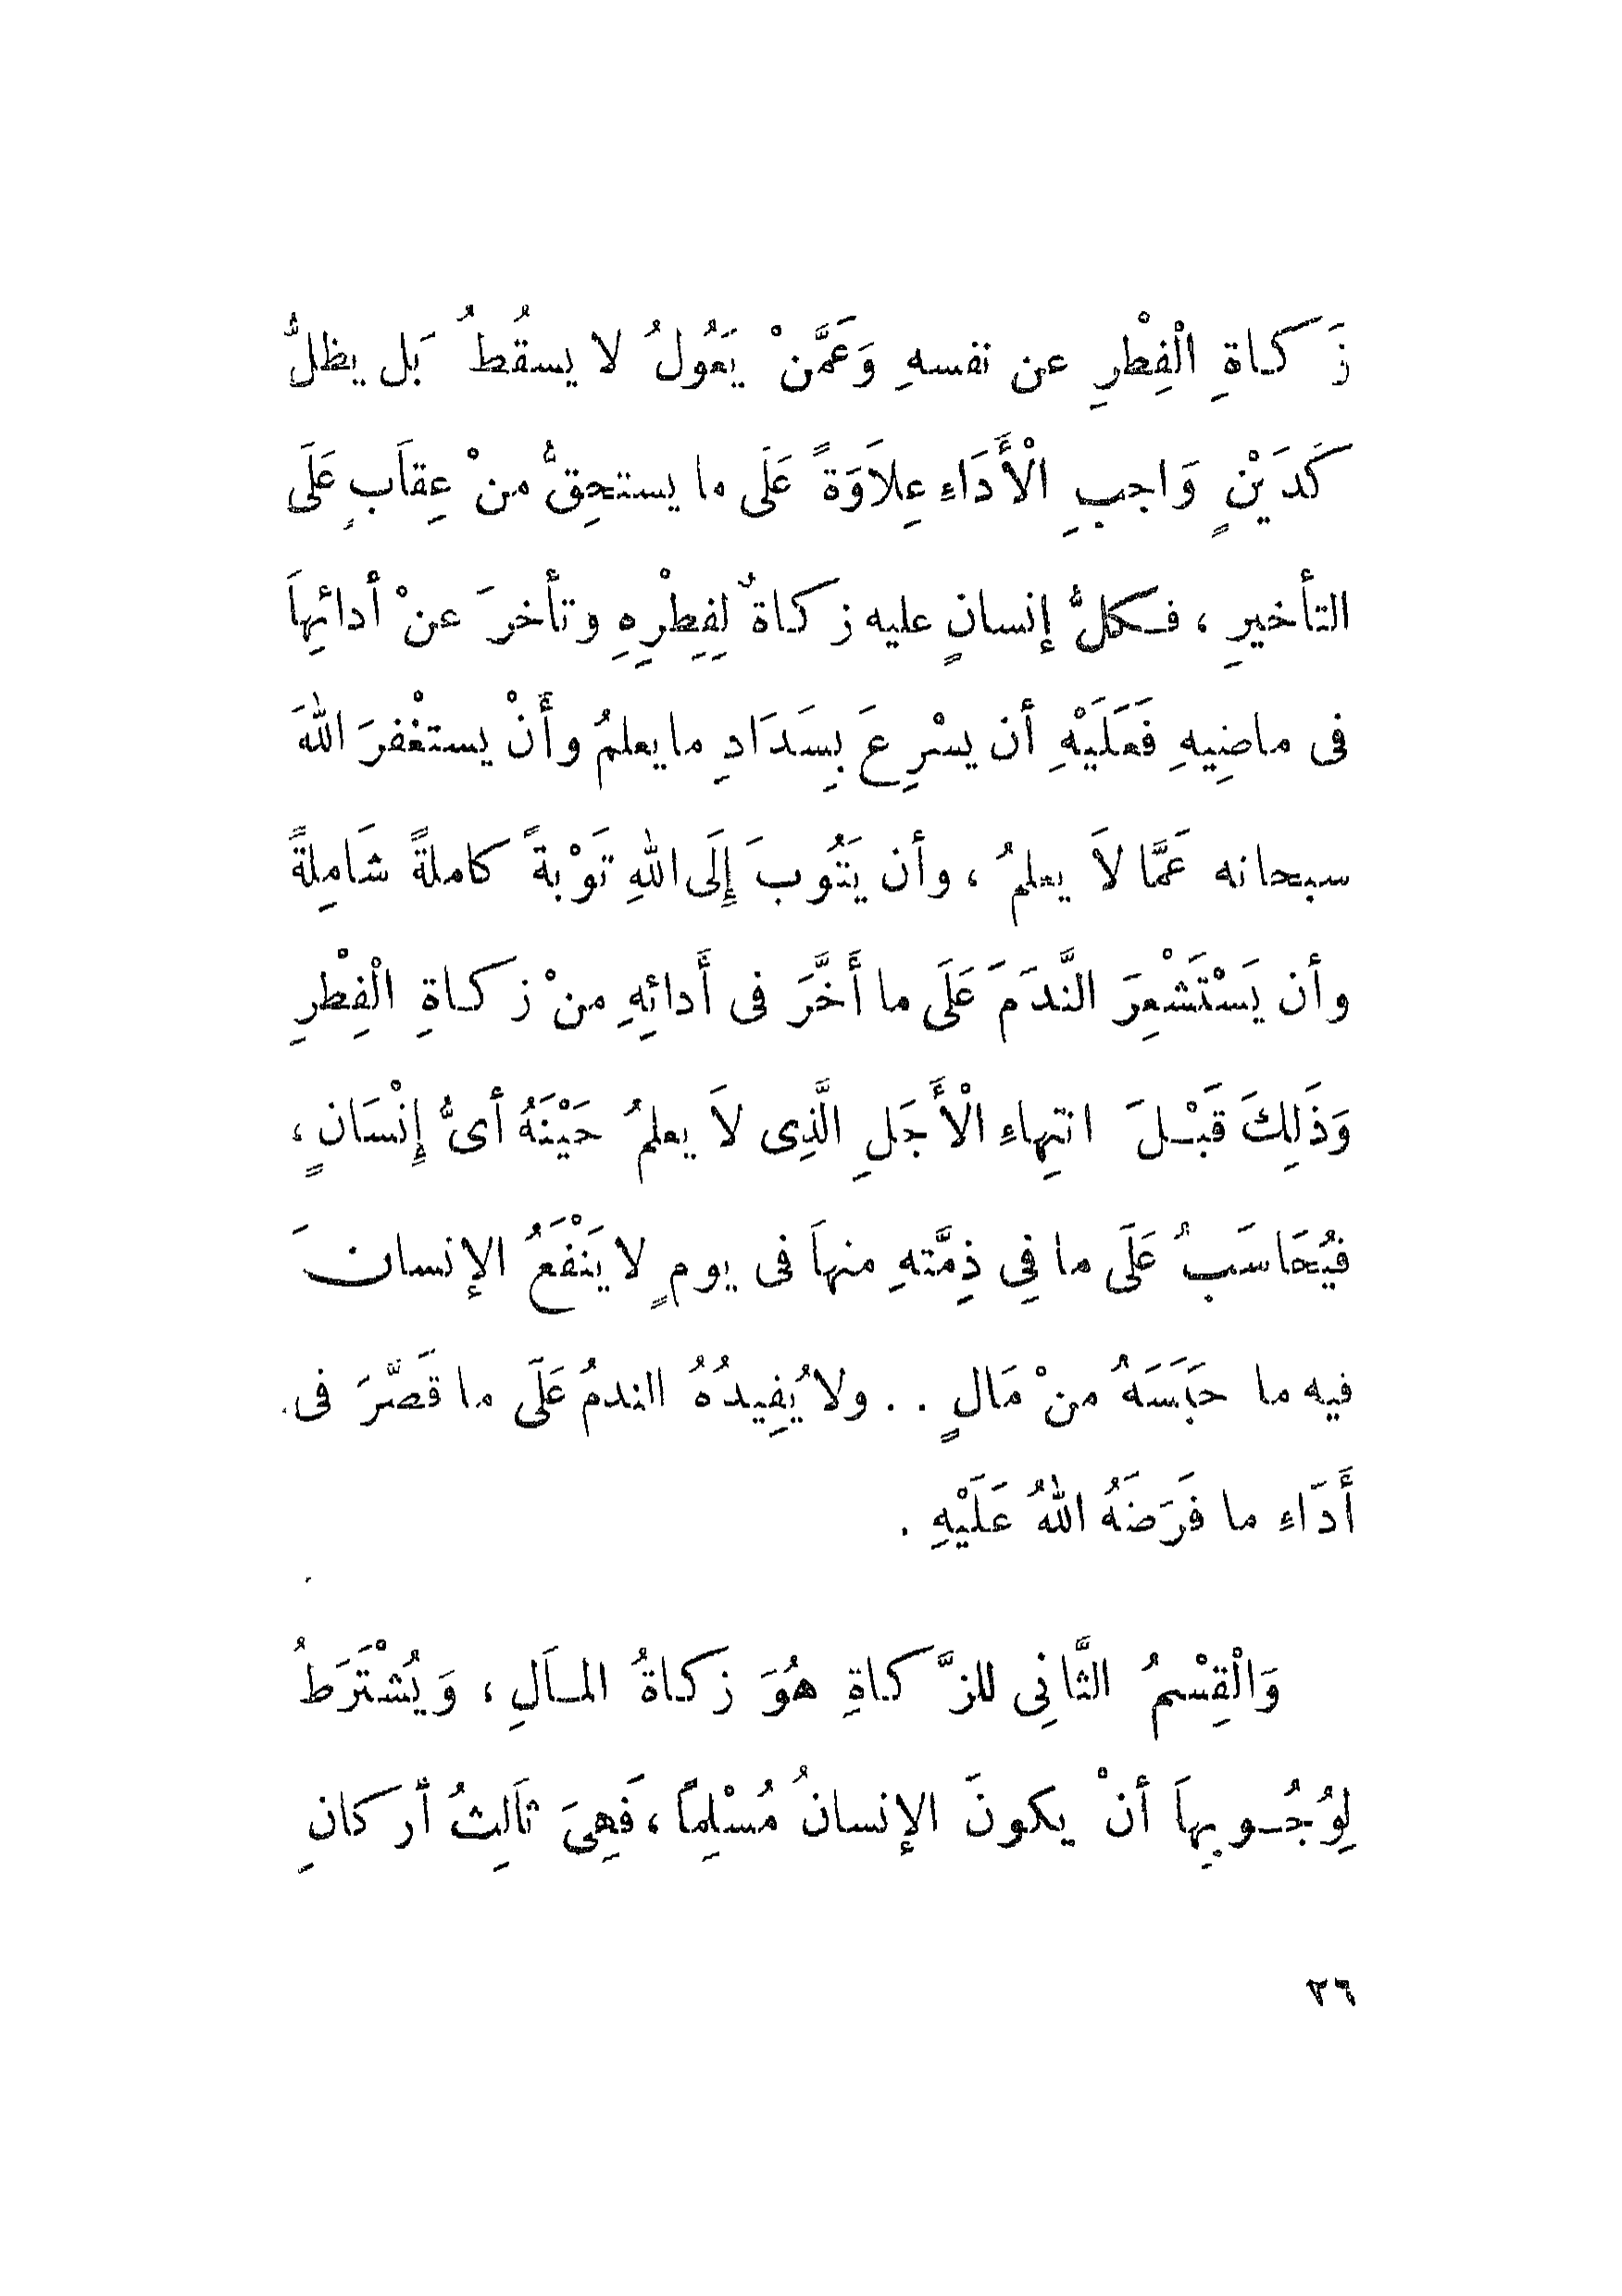 زَكاةِ الْفِطْرِ عن نفسهِ وَعَمَّنْ يَعُولُ لا يسقُطُ بَل يظلُّ
كَدَيْنٍ وَاجبِ الْأَدَاءِ عِلاَوَةً عَلَى ما يستحِقُّ منْ عِقاَبٍ عَلَى
التأخيرِ ، فكلُّ إنسانٍ عليه زكاةٌ لِفِطْرِهِ وتأخرَ عنْ أدائِهاَ
فى ماضِيهِ فَعَلَيْهِ أن يسْرِعَ بِسَدَادِ ما يعلمُ وأَنْ يستغْفرَ اللهَ
سبحانه عَمَّا لاَ يعلمُ ، وأن يَتُوبَ إِلَى اللهِ تَوْبةً كاملةً شَامِلةً
وأن يَسْتَشْعِرَ النَّدَمَ عَلَى ما أَخَّرَ فى أَدائِهِ منْ زكاةِ الْفِطْرِ
وَذَلِكَ قَبْلَ انتِهاءِ الْأَجَلِ الَّذِى لاَ يعلمُ حَيْنَهُ أىُّ إِنْسَانٍ ،
فيُحَاسَبُ عَلَى ما فِي ذِمَّتهِ منهاَ فى يومٍ لا يَنْفَعُ الإنسانَ
فيه ما حَبَسَهُ منْ مَالٍ . . ولا يُفِيدُهُ الندمُ عَلَى ما قَصَّرَ فى
أَدَاءِ ما فَرَضَهُ اللهُ عَلَيْهِ .
وَالْقِسْمُ الثَّانِى للزَّكاةِ هُوَ زكاةُ المـاَلِ ، وَيُشْتَرَطُ
لِوُجُـوبِهاَ أنْ يكونَ الإنسانُ مُسْلِماً ، فَهِىَ ثاَلِثُ أركانِ
٢٦